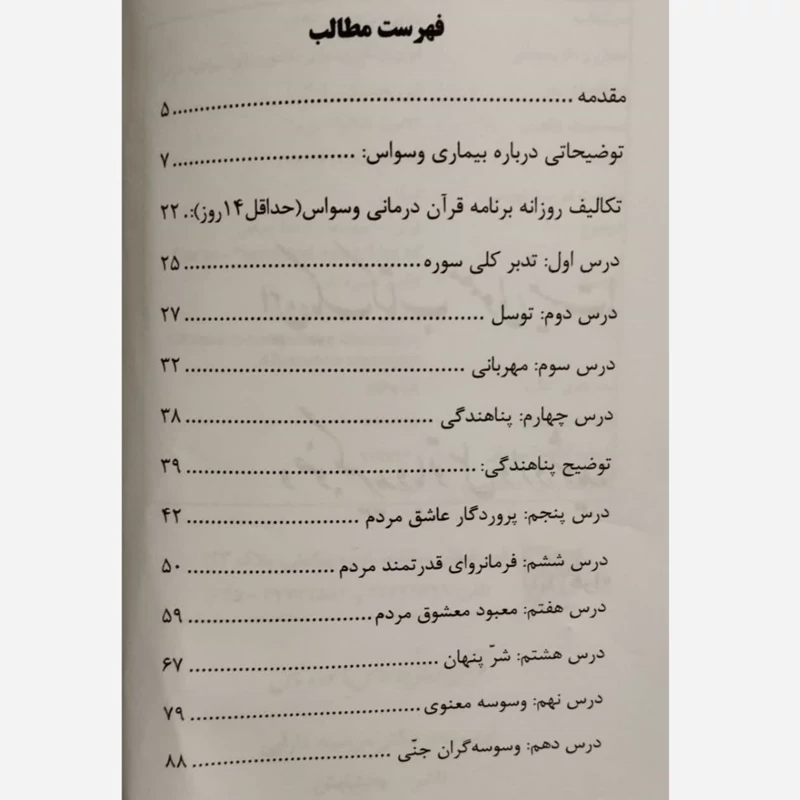 فهرست مطالب
مقدمه ................................................................ ۵
توضیحاتی درباره بیماری وسواس: ............................. ۷
تکالیف روزانه برنامه قرآن درمانی وسواس(حداقل۱۴روز):. ۲۲
درس اول: تدبر کلی سوره ...................................... ۲۵
درس دوم: توسل ................................................ ۲۷
درس سوم: مهربانی ............................................. ۳۲
درس چهارم: پناهندگی ........................................ ۳۸
توضیح پناهندگی: ............................................... ۳۹
درس پنجم: پروردگار عاشق مردم ............................ ۴۲
درس ششم: فرمانروای قدرتمند مردم ........................ ۵۰
درس هفتم: معبود معشوق مردم .............................. ۵۹
درس هشتم: شرّ پنهان ......................................... ۶۷
درس نهم: وسوسه معنوی ..................................... ۷۹
درس دهم: وسوسه‌گران جنّی ................................ ۸۸